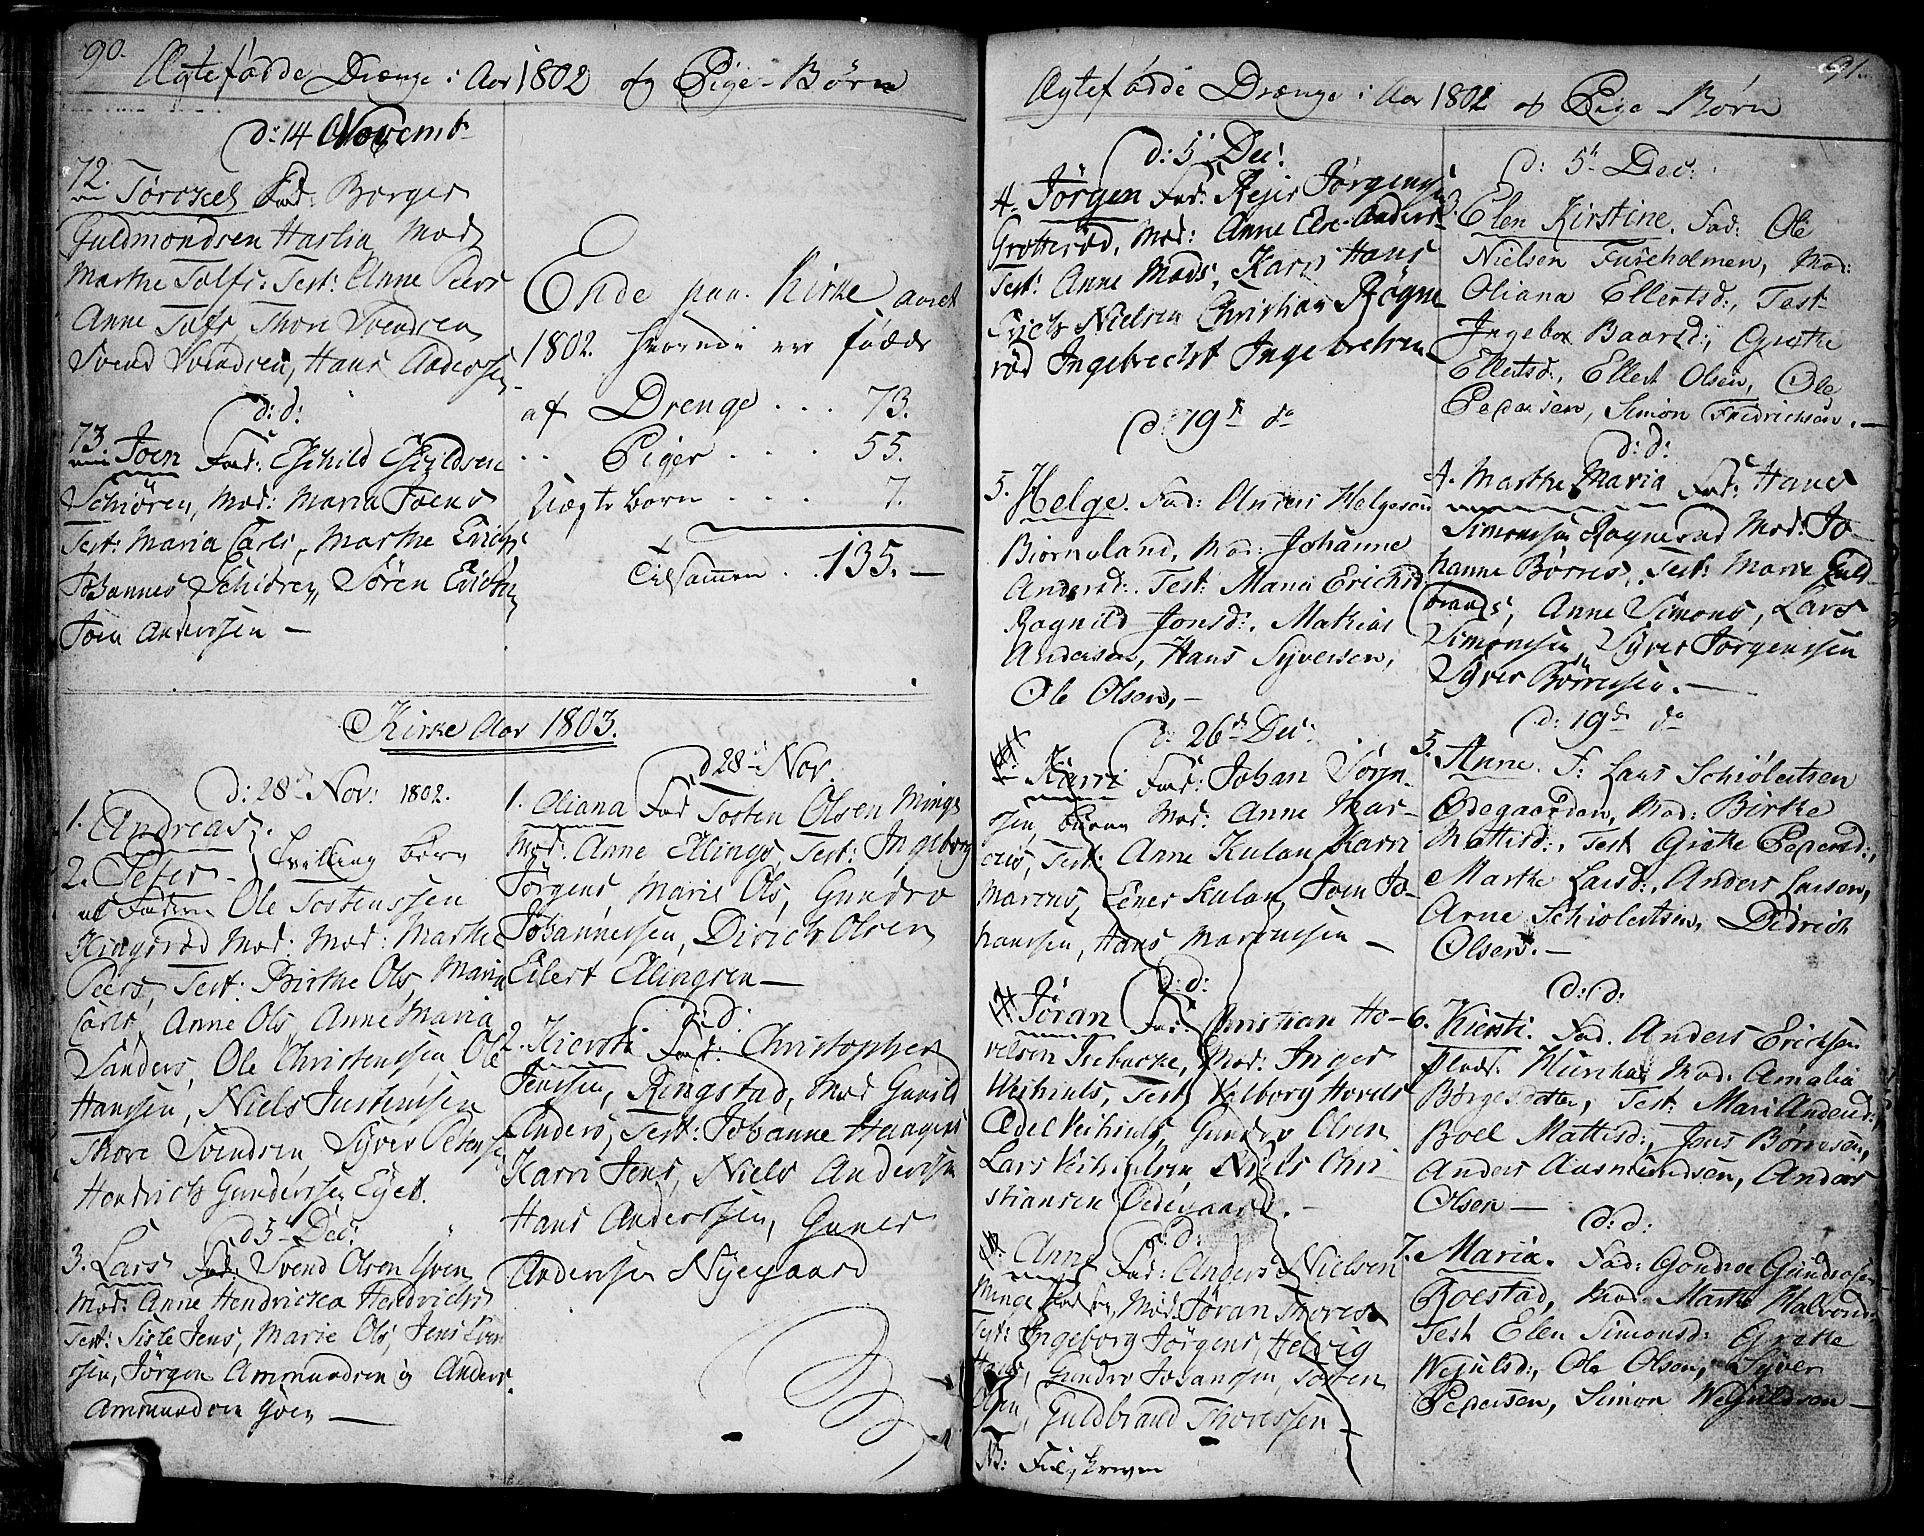 90.
Ægtefødde Drænge i Aar 1802 og Pige-Børn
d: 14 Novemb
72. Torckel Fad: Borger
Guldmondsen Haslia Mod
Marthe Tolfs: Test: Anne Peers
Anne Tolfs Thore Svendsen
Svend Svendsen, Hans Anderssen
d: d:
73. Joen Fad: Eschild Eschildsen
Schiören, Mod: Maria Joens
Test: Maria Carls, Marthe Erichs
Johannes Schiören, Sören Erichsen
Joen Anderssen —
Ende paa Kirke aaret
1802. hvorudi er födde
af Drenge . . . 73.
. . Piger . . . . 55.
Uægte born . . . . 7.
Tilsammen . . 135. —
Kirke Aar 1803.
d: 28 Nov: 1802.
1. Andreas.
2. Peter — tvilling børn
Ole Tostenssen
Kingsrød Mod. Mod: Marthe
Peers, Test: Birthe Ols, Maria
Carls, Anne Ols, Anne Maria
Sanders, Ole Christenssen Ole
Hanssen, Niels Justenssen
Thore Svendsen, Syver Petersen
Hendrich Gunderssen Eyed.
d 5 Dec:
3. Lars Fad: Svend Olsen Gven
Mod: Anne Hendricka Hendrichs
Test: Sisle Jens, Marie Ols, Jens
sen, Jörgen Ammundsen og Anders
Ammundsen Gven —
d 28 Nov.
1. Oliana Fad Tosten Olsen Minge
Mod: Anne Ellings, Test: Ingeborg
Jørgens, Marie Ols, Gundro
Johannessen, Dirich Olsen
Eilert Ellingsen —
d: d:
2. Kiersti Fad: Christopher
Jenssen, Ringstad, Mod Gunild
Anders, Test: Johanne Haagens
Karri Jens, Niels Anderssen
Hans Anderssen, Guner
Anderssen Nyegaard
91.
Ægtefødde Drænge i Aar 1802 og Pige-Børn
d: 5 Dec:
4. Jörgen Fad: Rejer Jørgenssen
Grotterød, Mod: Anne Else Anders
Test: Anne Mads, Karri Hans
Erich Nielsen Christian Rögne-
röd Ingebrecht Ingebretsen
d 19 do
5. Helge. Fad: Anders Helgesen
Biørneland, Mod: Johanne
Andersd: Test: Maria Erichsd
Ragnild Jonsd:, Mathias
Andersen, Hans Syversen,
Ole Olsen, —
d: 26 Dec:
Karri Fad: Johan Jörgn-
sen, Mod: Anne Mar-
cus, Test: Anne Kulan Karri
Marcus, Ener Kulan, Joen Jo-
hanssen, Hans Marcussen —
d: d:
Jøran Fad: Christian Ho-
velsen Isebacke, Mod: Inger
Test Vilborg Hovels
Gundro Olsen
Lars Niels Chri-
stiansen Ødegaard. —
d: d:
Anne Fad: Anders Nielsen
Minge Mod: Jøran Thores
Test: Ingeborg Jørgens, Helvig
Hans, Gundro Johansen, Tosten
Olsen, Guldbrand Thoressen —
NB:
d: 5 Dec:
3. Elen Kirstine. Fad: Ole
Nielsen Fureholmen, Mod:
Oliana Ellertsd:, Test
Ingebor Baarsd:, Grethe
Ellertsd:, Ellert Olsen, Ole
Pedersen, Simon Fridrichsen. —
d: d:
4. Marthe Maria Fad: Hans
Simonssen Rognerød Mod: Jo-
hanne Börres, Test: Marie Guld-
brands, Anne Simons, Lars
Simonssen, Syver Jørgenssen
Syver Börressen. —
d: 19 do
5. Anne. F: Lars Schiölertsen
Ødegaarden, Mod: Birthe
Mattisd:, Test Grethe Pedersd:,
Marthe Larsd:, Anders Larsen,
Arne Schiolertsen, Didrich
Olsen. —
d: d:
6. Kiersti. Fad. Anders Ericksen
Mod: Amalia
Børgesdatter, Test: Mari Andersd:,
Boel Mattisd:, Jens Børresen,
Anders Aasmundsen, Anders
Olsen —
d: d:
7. Maria. Fad: Gondroe Gundrosen
Roestad, Mod: Marthe Halvords
Test Elen Simonsd: Grethe
Ole Olsen, Syver
Pedersen, Simon